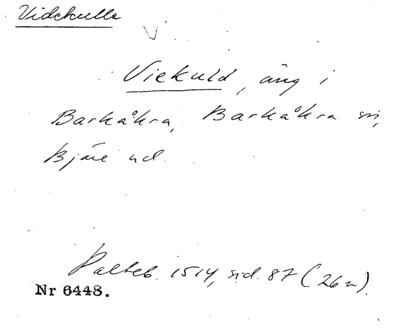 Videkulle
V
Viekuld, äng i
Barkåkra, Barkåkra sn,
Bjäre hd.
Palteb. 1514, sid. 87 (26 r).
Nr 6448.